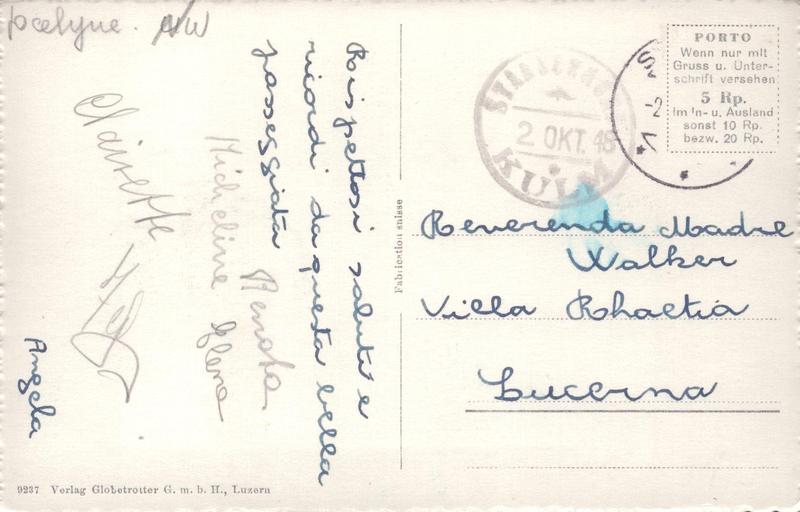 Jocelyne.
Rispettosi saluti e
ricordi da questa bella
passeggiata
Renata
Micheline
Elena
Clairette
Angela
9237 Verlag Globetrotter G. m. b. H., Luzern
Fabrication suisse
2. OKT. 48
KULM
PORTO
Wenn nur mit
Gruss u. Unter-
schrift versehen
5 Rp.
Im In- u. Ausland
sonst 10 Rp.
bezw. 20 Rp.
Reverenda Madre
Walker
Villa Rhaetia
Lucerna